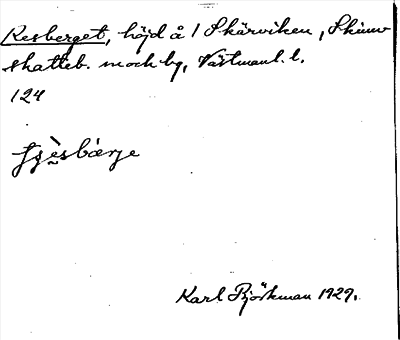 Resberget, höjd å 1 Skärviken, Skinn
skatteb. m och by, Västmanl. l.
124
Karl Björkman 1929.